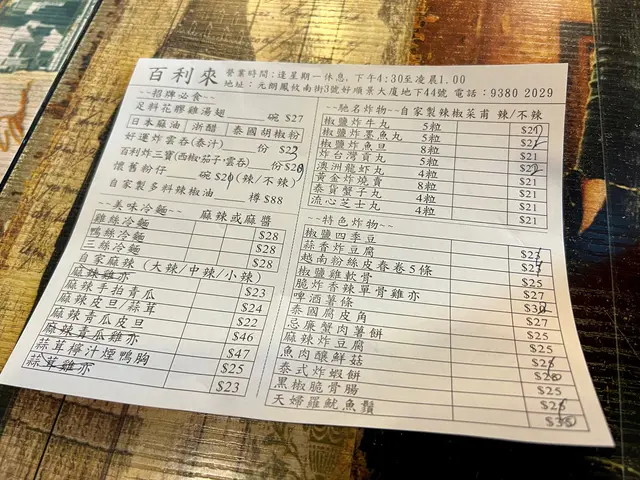 百利來
營業時間:逢星期一休息, 下午4:30至凌晨1.00
地址: 元朗鳳攸南街3號好順景大廈地下44號 電話:9380 2029
--招牌必食--
足料花膠雞湯翅____碗 $27
日本麻油 浙醋 泰國胡椒粉
好運炸雲吞(泰汁)____份 $23
百利炸三寶(西椒·茄子·雲吞)____份
懷舊粉仔____碗 (辣/不辣)
自家製多料辣椒油____樽 $88
--美味冷麵-- 麻辣或麻醬
雞絲冷麵 $28
鴨絲冷麵 $28
三絲冷麵 $28
自家麻辣 (大辣/中辣/小辣)
麻辣雞亦 $23
麻辣手拍青瓜 $24
麻辣皮旦/蒜茸 $22
麻辣青瓜皮旦 $46
麻辣青瓜雞亦 $47
蒜茸檸汁煙鴨胸 $25
蒜茸雞亦 $23
--馳名炸物--自家製辣椒菜甫 辣/不辣
椒鹽炸牛丸 5粒
椒鹽炸墨魚丸 5粒
椒鹽炸魚旦 8粒 $21
炸台灣貢丸 5粒 $21
澳洲龍蝦丸 4粒
黃金炸燒賣 8粒 $21
泰貨蟹子丸 4粒 $21
流心芝士丸 4粒 $21
--特色炸物--
椒鹽四季豆
蒜香炸豆腐
越南粉絲皮春卷5條 $25
椒鹽雞軟骨 $27
脆炸香辣單骨雞亦
啤酒薯條 $27
泰國腐皮角 $25
忌廉蟹肉薯餅 $25
麻辣炸豆腐
魚肉釀鮮菇
泰式炸蝦餅 $25
黑椒脆骨腸
天婦羅魷魚鬚